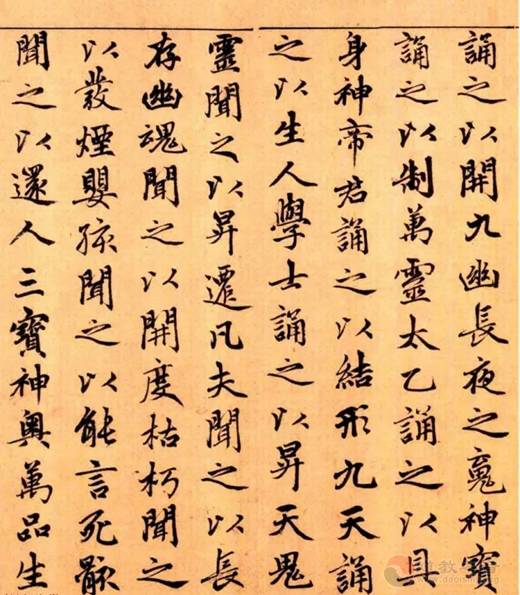 誦之以開九幽長夜之䰟神寶
誦之以制萬靈太乙誦之以具
身神帝君誦之以結形九天誦
之以生人學士誦之以昇天鬼
靈聞之以昇遷凡夫聞之以長
存幽魂聞之以開度枯朽聞之
以發煙嬰孩聞之以能言死骸
聞之以還人三寶神奧萬品生